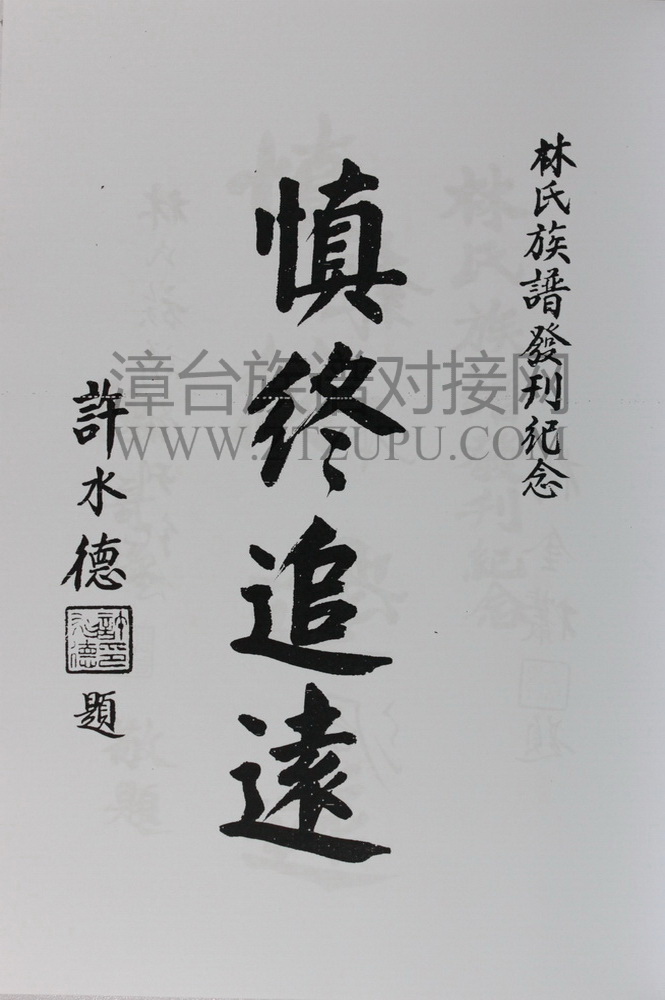 林氏族譜發刊紀念
慎終追遠
許水德
題
漳台族谱对接网
WWW.ZTZUPU.COM